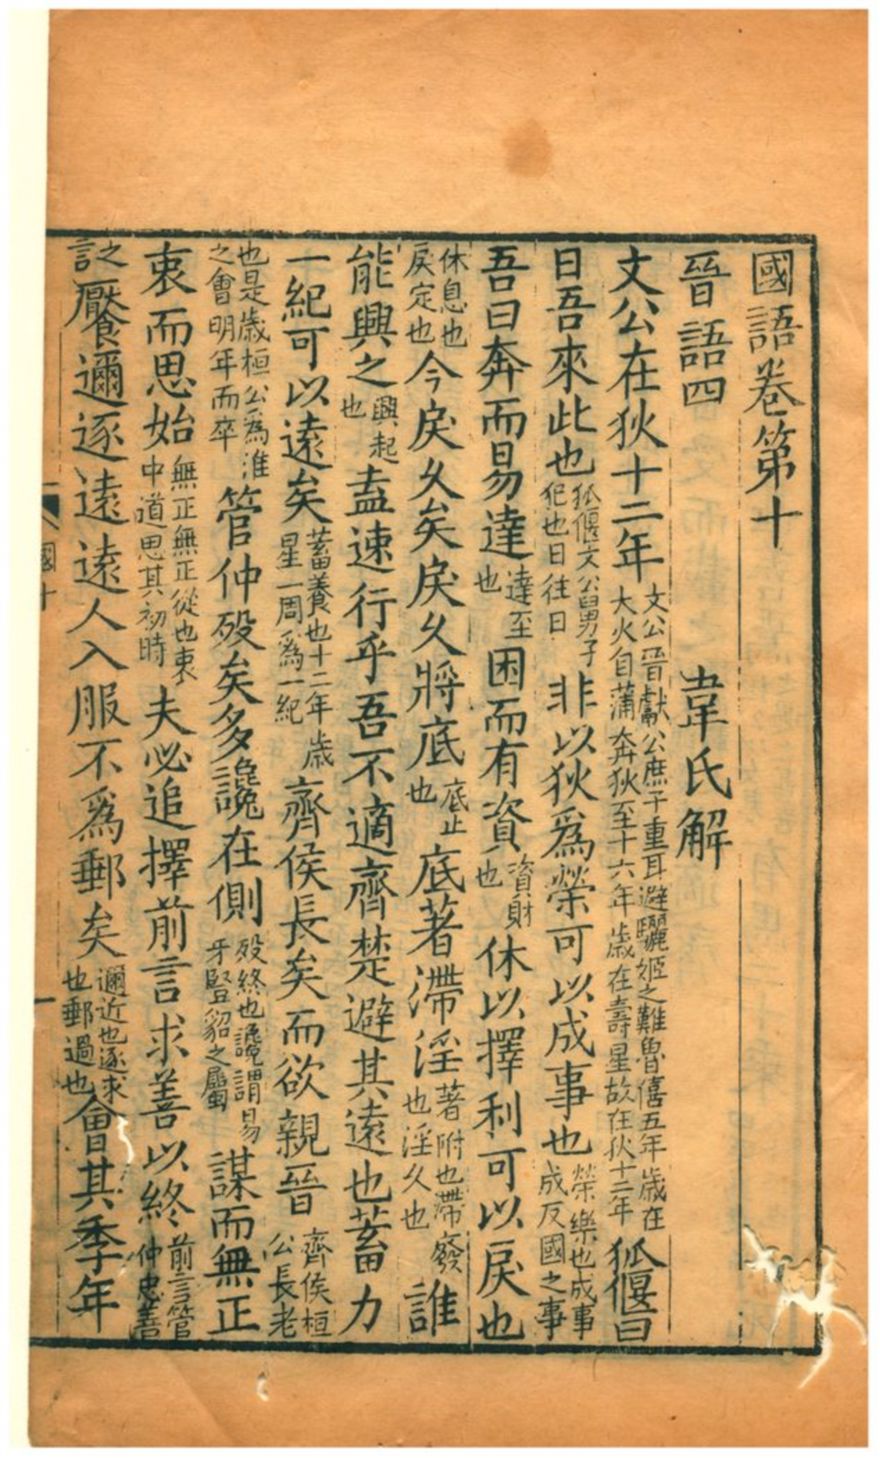 國語卷第十
晉語四 韋氏解
文公在狄十二年文公晉獻公庶子重耳避驪姬之難魯僖五年歲在大火自蒲奔狄至十六年歲在壽星故在狄十二年狐偃曰
日吾來此也狐偃文公舅男子犯也日往日非以狄爲榮可以成事也榮樂也成事成反國之事
吾曰奔而易達達至也困而有資資財也休以擇利可以戾也
休息也戾定也今戾久矣戾久將底底止也底著滯淫著附也滯廢也淫久也誰
能興之興起也盍速行乎吾不適齊楚避其遠也蓄力
一紀可以遠矣蓄養也十二年歲星一周爲一紀齊侯長矣而欲親晉齊侯桓公長老
也是歲桓公爲淮之會明年而卒管仲歿矣多讒在側歿終也讒謂易牙豎貂之屬謀而無正
衷而思始無正無正從也衷中道思其初時夫必追擇前言求善以終前言管仲忠善
之言饜邇逐遠遠人入服不爲郵矣邇近也逐求也郵過也會其季年
國十